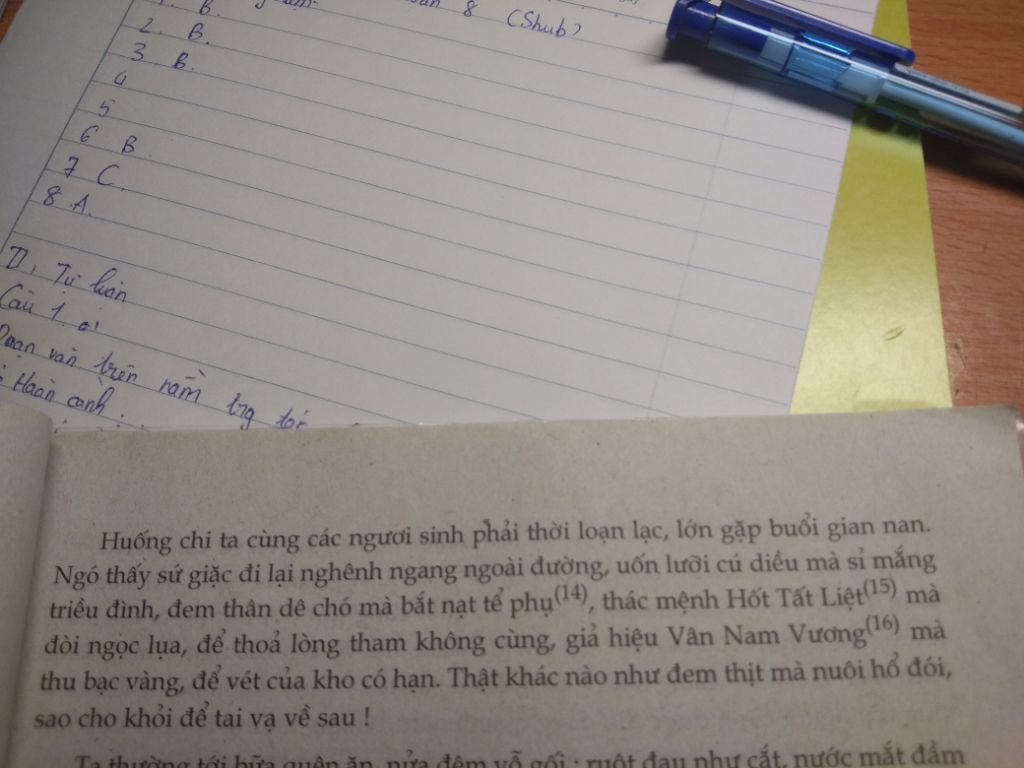 B.
8 (Shub)
2. B.
3 B.
4
5
6 B
7 C.
8 A.
II, Tự luận
Câu 1. a,
Đoạn văn trên nằm trg
Hoàn cảnh:
Huống chi ta cùng các ngươi sinh phải thời loạn lạc, lớn gặp buổi gian nan.
Ngó thấy sứ giặc đi lại nghênh ngang ngoài đường, uốn lưỡi cú diều mà sỉ mắng
triều đình, đem thân dê chó mà bắt nạt tể phụ(14), thác mệnh Hốt Tất Liệt(15) mà
đòi ngọc lụa, để thoả lòng tham không cùng, giả hiệu Vân Nam Vương(16) mà
thu bạc vàng, để vét của kho có hạn. Thật khác nào như đem thịt mà nuôi hổ đói,
sao cho khỏi để tai vạ về sau !
Ta thường tới bữa quên ăn, nửa đêm vỗ gối ; ruột đau như cắt, nước mắt đầm